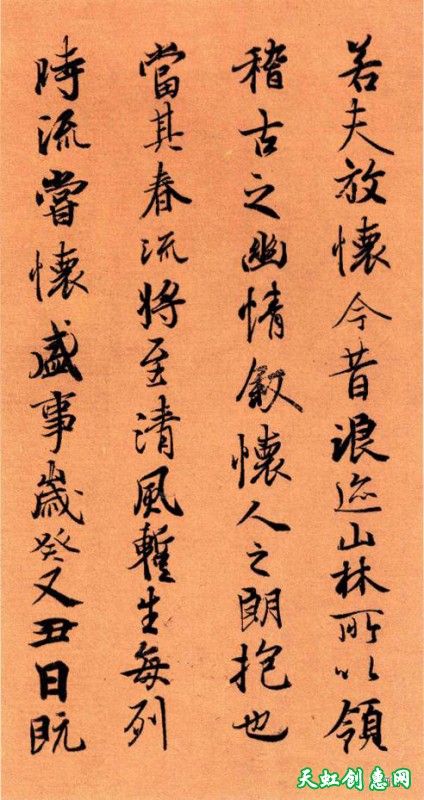 若夫放懷今昔浪迹山林所以領
稽古之幽情叙懷人之朗抱也
當其春流將至清風暫生每列
時流嘗懷盛事歲癸又丑日既
天虹创惠网